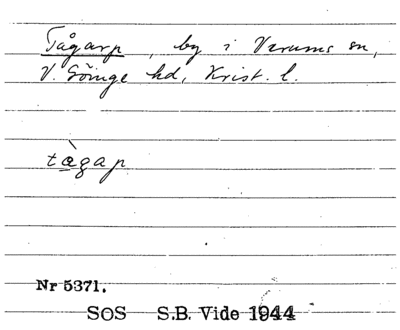 Tågarp, by i Verums sn,
V. Göinge hd, Krist. l.
tægap
Nr 5371.
SOS S.B. Vide 1944